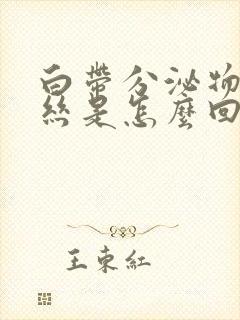 白帶分泌物
絲是怎麼回
王東紅